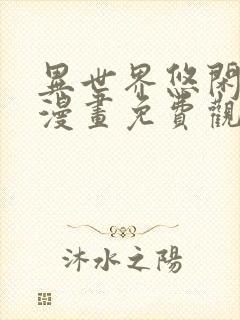 異世界悠閑
漫畫免費觀
沐水之陽